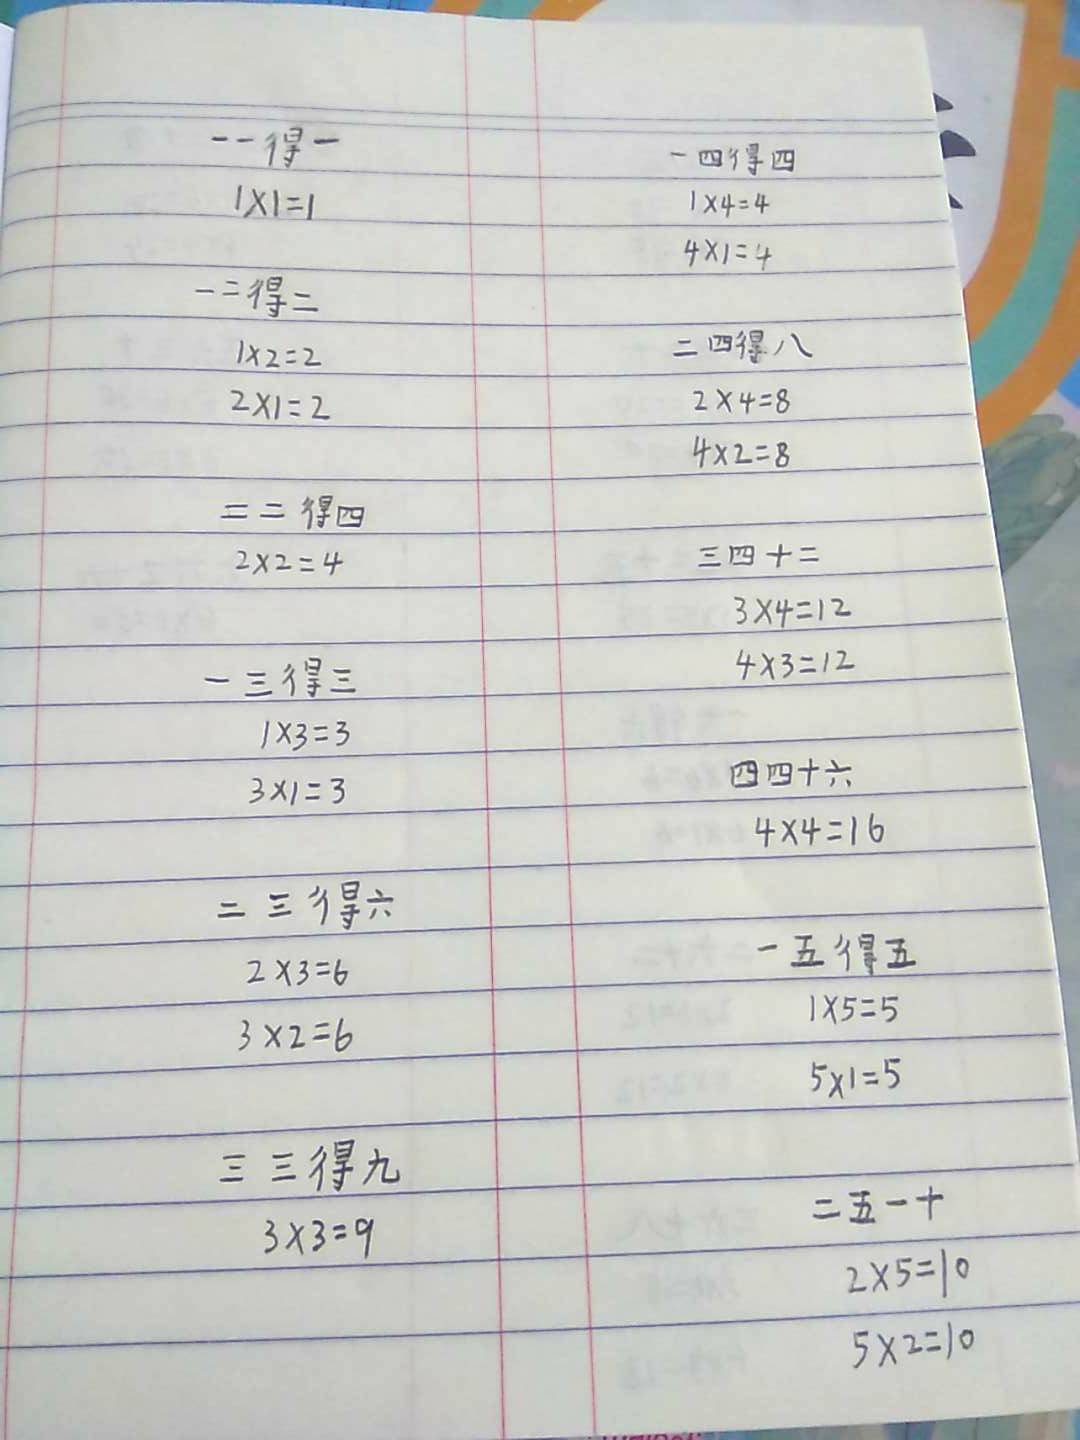 一一得一
1×1=1
一二得二
1×2=2
2×1=2
二二得四
2×2=4
一三得三
1×3=3
3×1=3
二三得六
2×3=6
3×2=6
三三得九
3×3=9
一四得四
1×4=4
4×1=4
二四得八
2×4=8
4×2=8
三四十二
3×4=12
4×3=12
四四十六
4×4=16
一五得五
1×5=5
5×1=5
二五一十
2×5=10
5×2=10